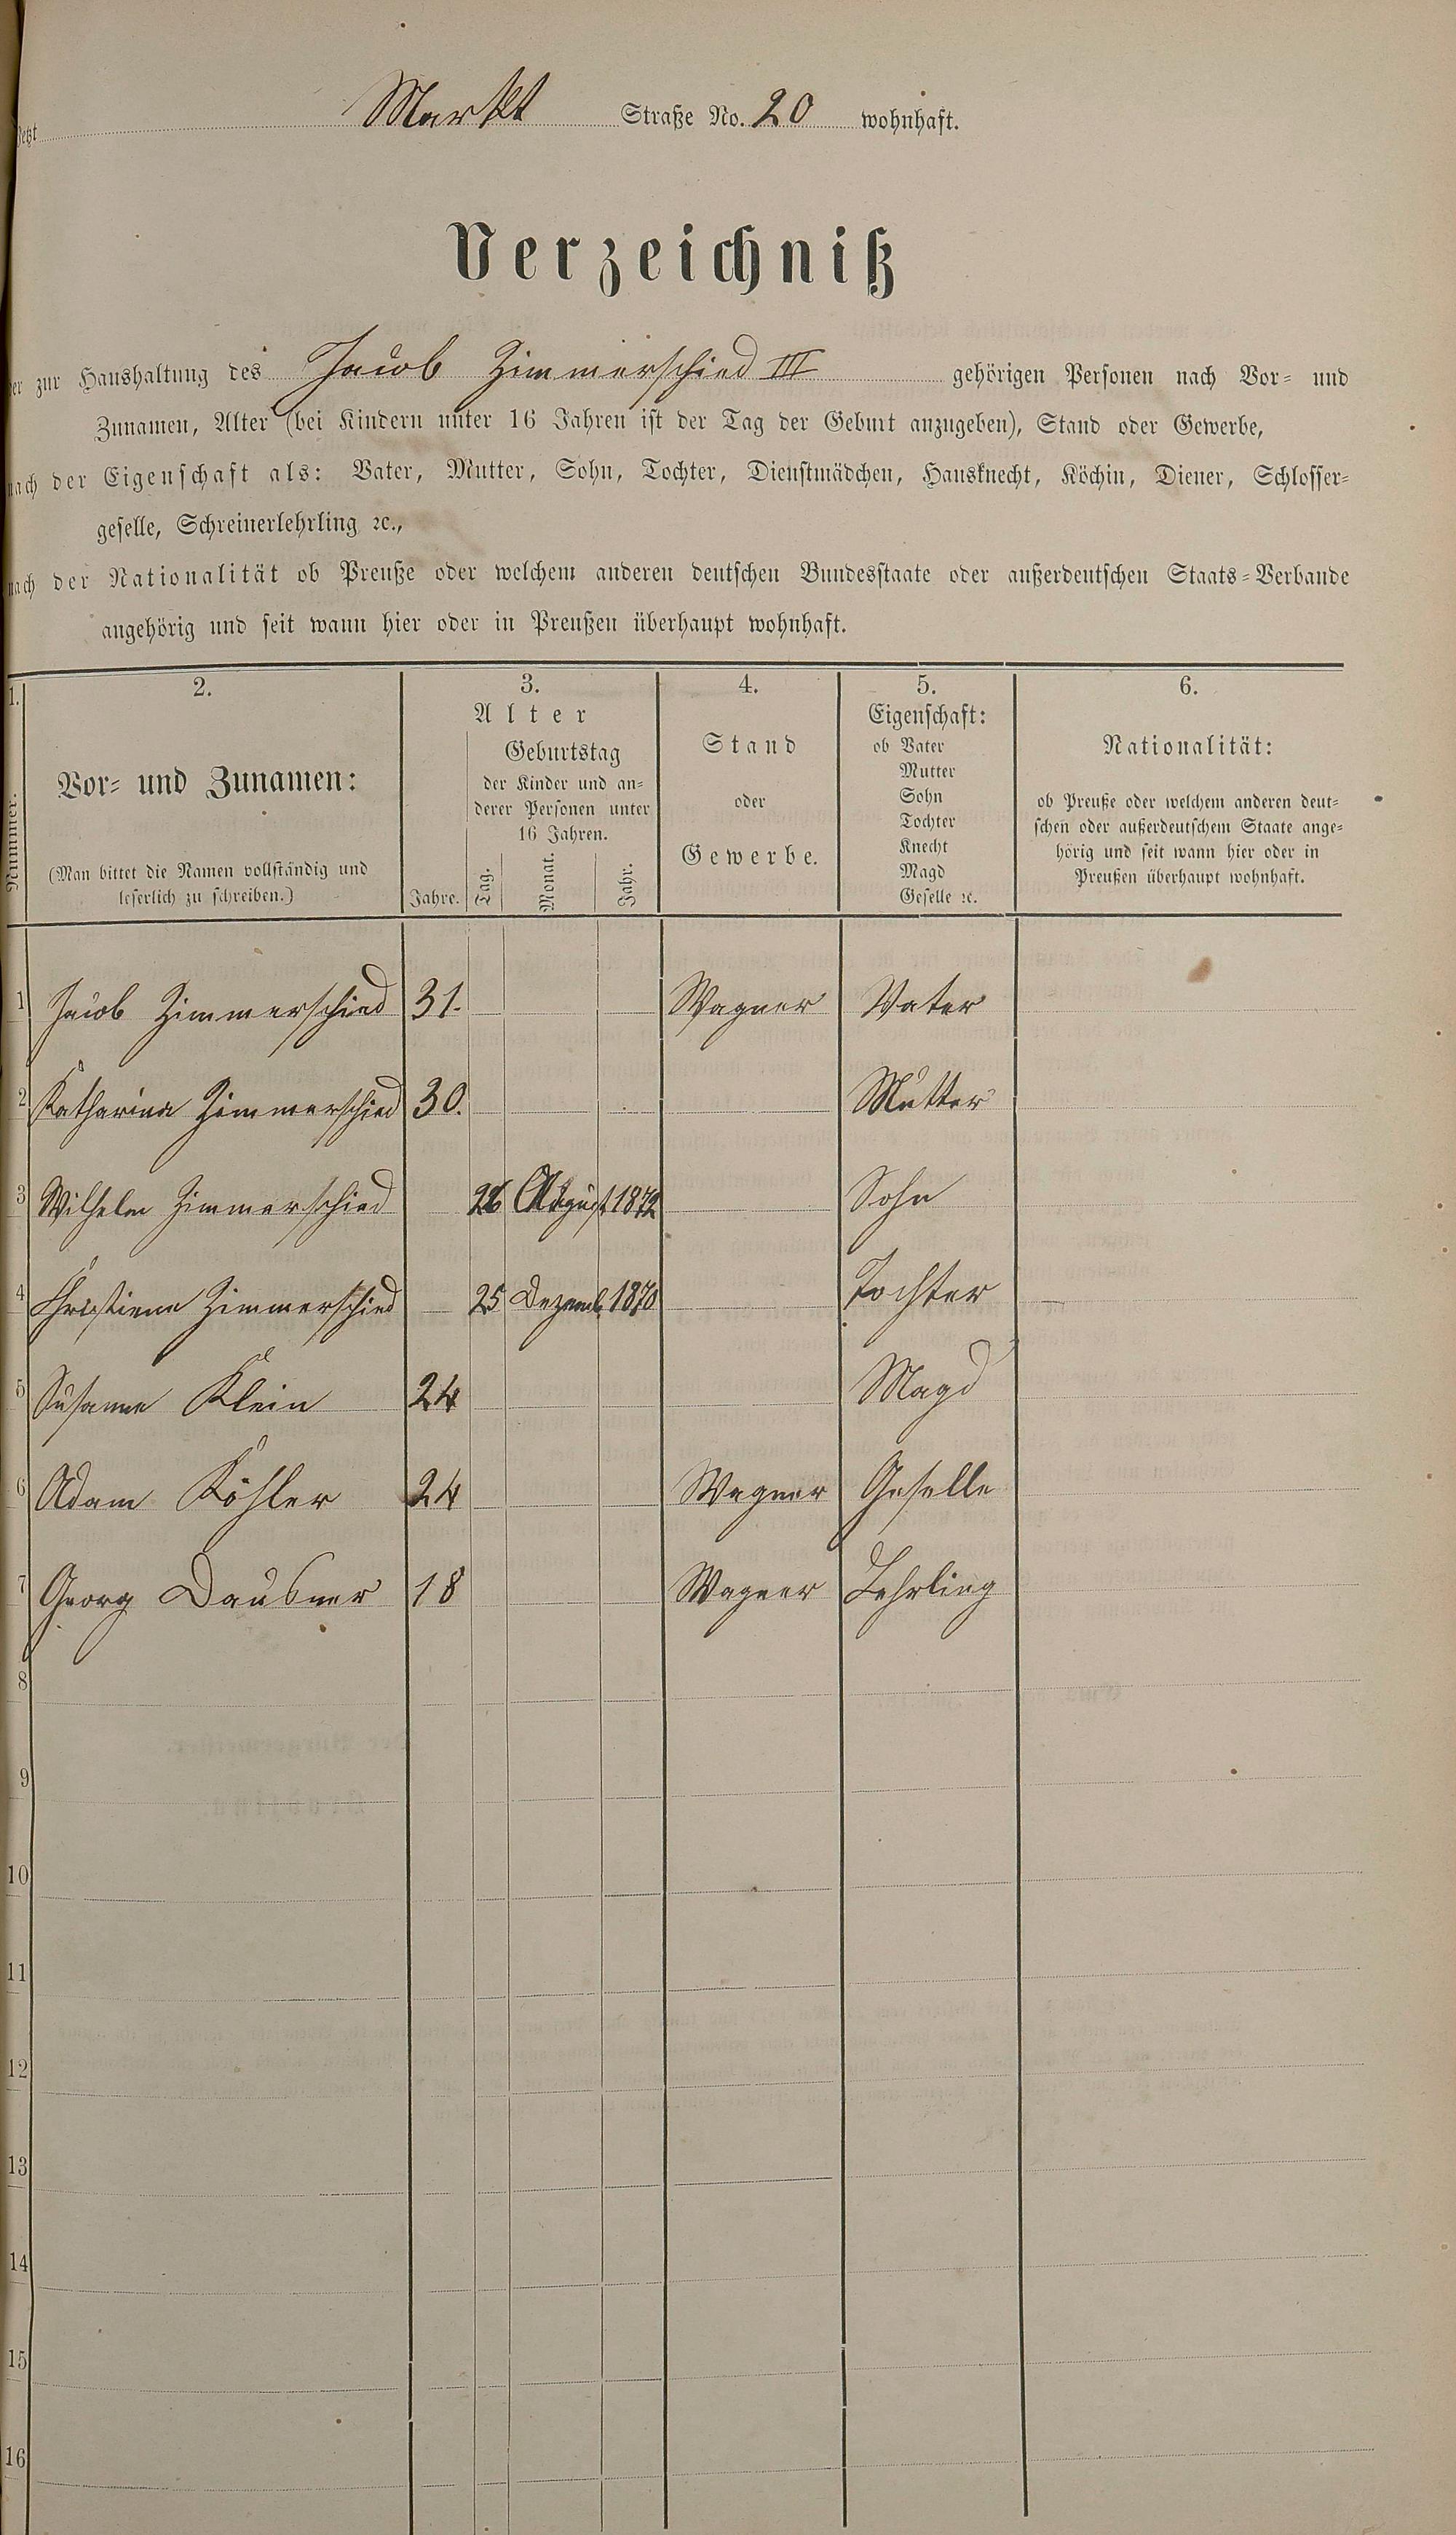 Jetzt Markt Straße No. 20 wohnhaft.
Verzeichniß
der zur Haushaltung des Jacob Zimmerschied III gehörigen Personen nach Vor- und
Zunamen, Alter (bei Kindern unter 16 Jahren ist der Tag der Geburt anzugeben), Stand oder Gewerbe,
nach der Eigenschaft als: Vater, Mutter, Sohn, Tochter, Dienstmädchen, Hausknecht, Köchin, Diener, Schlosser-
geselle, Schreinerlehrling ꝛc.,
nach der Nationalität ob Preuße oder welchem anderen deutschen Bundesstaate oder außerdeutschen Staats-Verbande
angehörig und seit wann hier oder in Preußen überhaupt wohnhaft.
1.
Nummer.
2.
Vor- und Zunamen:
(Man bittet die Namen vollständig und
leserlich zu schreiben.)
3.
Alter
Jahre.
Geburtstag
der Kinder und an-
derer Personen unter
16 Jahren.
Tag. Monat. Jahr.
4.
Stand
oder
Gewerbe.
5.
Eigenschaft:
ob Vater
Mutter
Sohn
Tochter
Knecht
Magd
Geselle ꝛc.
6.
Nationalität:
ob Preuße oder welchem anderen deut-
schen oder außerdeutschem Staate ange-
hörig und seit wann hier oder in
Preußen überhaupt wohnhaft.
1 Jacob Zimmerschied 31. Wagner Vater
2 Katharina Zimmerschied 30. Mutter
3 Wilhelm Zimmerschied August 1872 Sohn
4 Christiena Zimmerschied 25 Dezemb. 1870 Tochter
5 Susanne Klein 24 Magd
6 Adam Köhler 24 Wagner Geselle
7 Georg Dausner 18 Wagner Lehrling
8
9
10
11
12
13
14
15
16